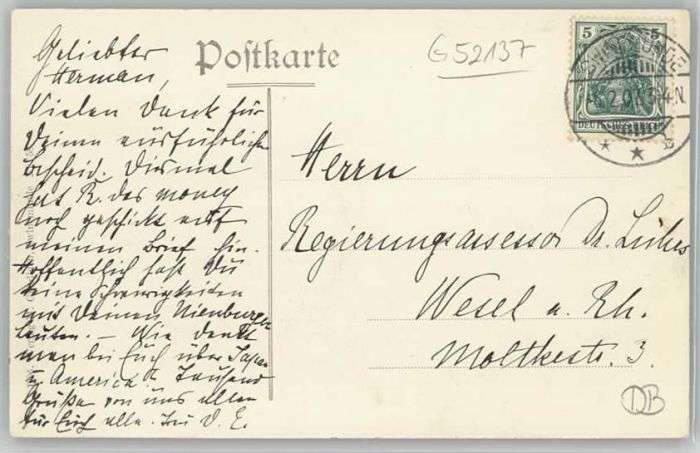 Postkarte
G52137
Geliebter
Herman,
Vielen Dank für
Deinen ausführlichen
Bescheid. Diesmal
hat R. das money
noch geschickt auf
meinen Brief hin.
Hoffentlich hast Du
keine Schwierigkeiten
mit Deinen Nienburger
Leuten. – Wie denkt
man bei Euch über Japan
u. America? Tausend
Grüße von uns allen
für Euch alle.
Herrn
Regierungsassessor Dr.
Wesel a. Rh.
Moltkestr. 3.
5 5
DEUTSCHES REICH
SWINEMÜNDE
DB